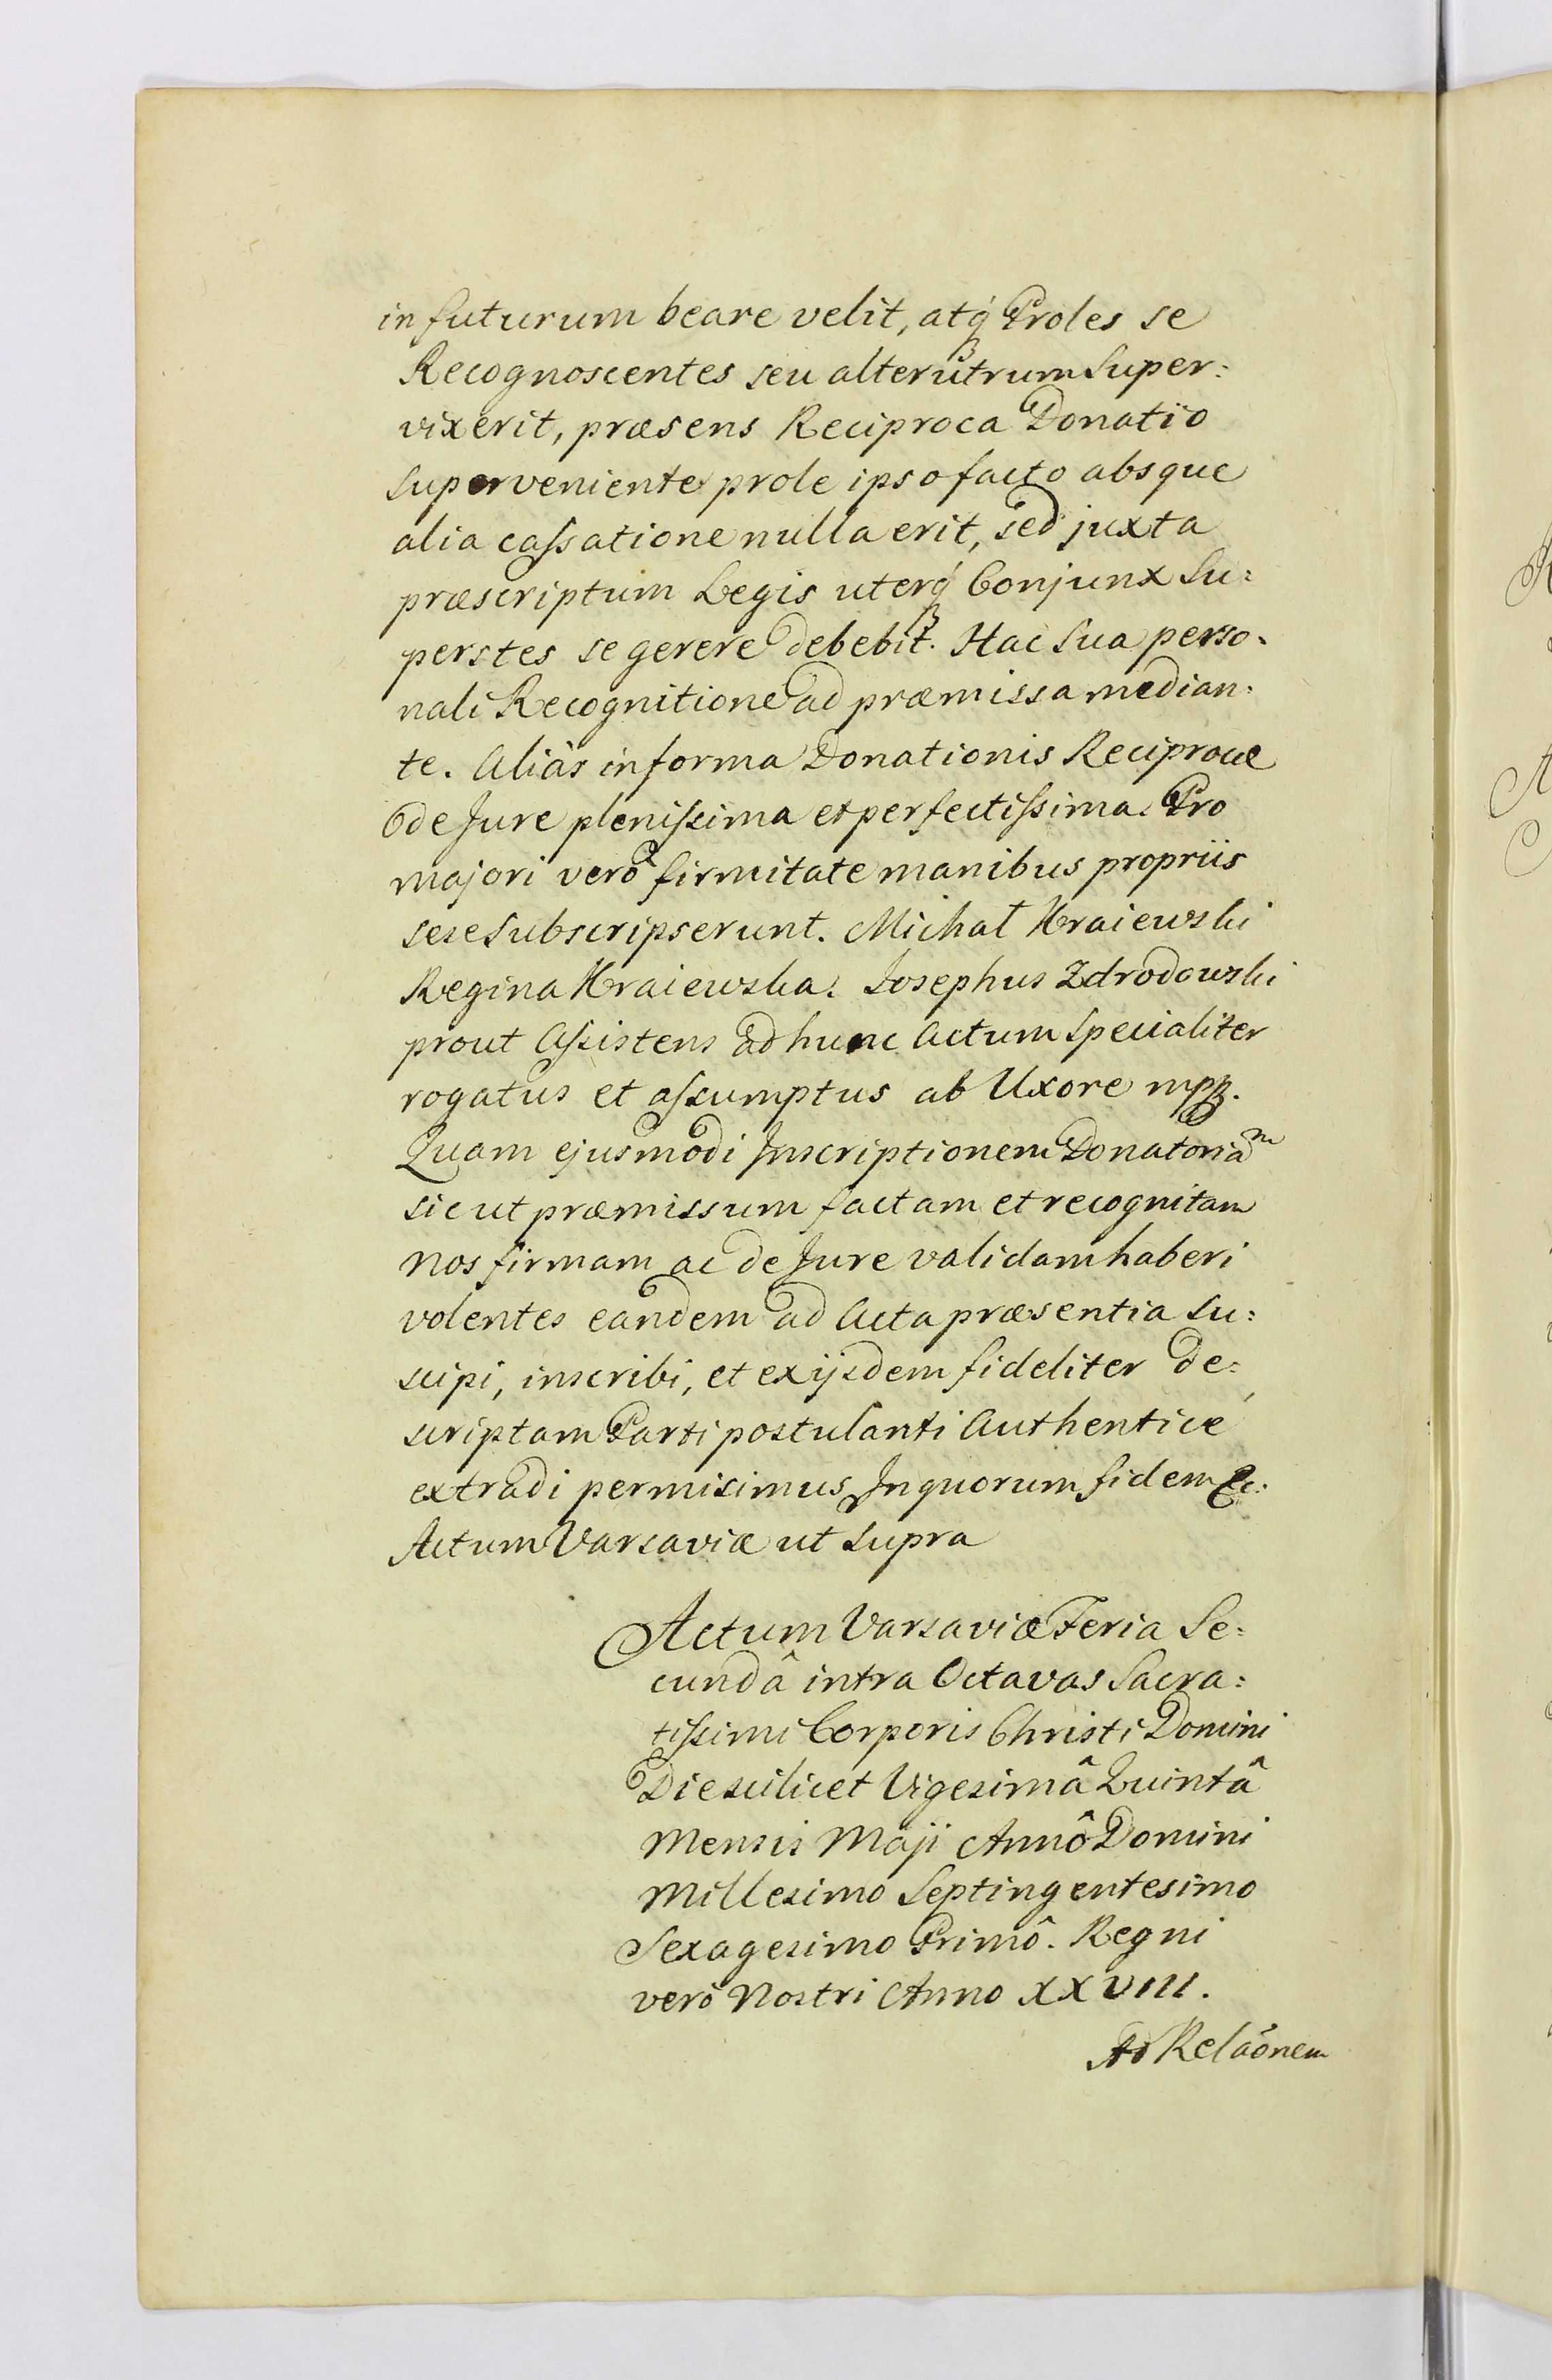 in futurum beare velit, atq́ Proles se
Recognoscentes seu alterutrum super:
vixerit, præsens Reciproca Donatio
superveniente prole ipso facto absque
alia caſsatione nulla erit, sed juxta
præscriptum Legis uterq́ Conjunx su:
perstes se gerere debebit. Hac sua perso:
nali Recognitione ad præmissa median:
te. Aliàs in forma Donationis Reciprocæ
de Jure pleniſsima et perfectiſsima. Pro
majori verò firmitate manibus propriis
sese subscripserunt. Michał Kraiewski
Regina Kraiewska. Josephus Zdrodowski
prout Aſsistens ad hunc Actum specialiter
rogatus et aſsumptus ab Uxore mpp.
Quam ejusmodi Inscriptionem Donatoriãm
sic ut præmissum factam et recognitam
Nos firmam ac de Jure validam haberi
volentes eandem ad Acta præsentia su:
scipi, inscribi, et ex ijsdem fideliter de:
scriptam Parti postulanti Authenticè
extradi permisimus In quorum fidem &c.
Actum Varsaviæ ut supra
Actum Varsaviæ Feria Se:
cundâ intra Octavas Sacra:
tiſsimi Corporis Christi Domini
Die scilicet Vigesimâ Quintâ
Mensis Maji Annô Domini
Millesimo Septingentesimo
Sexagesimo Primô. Regni
verò Nostri Anno XXVIII.
Ad Relaõnem